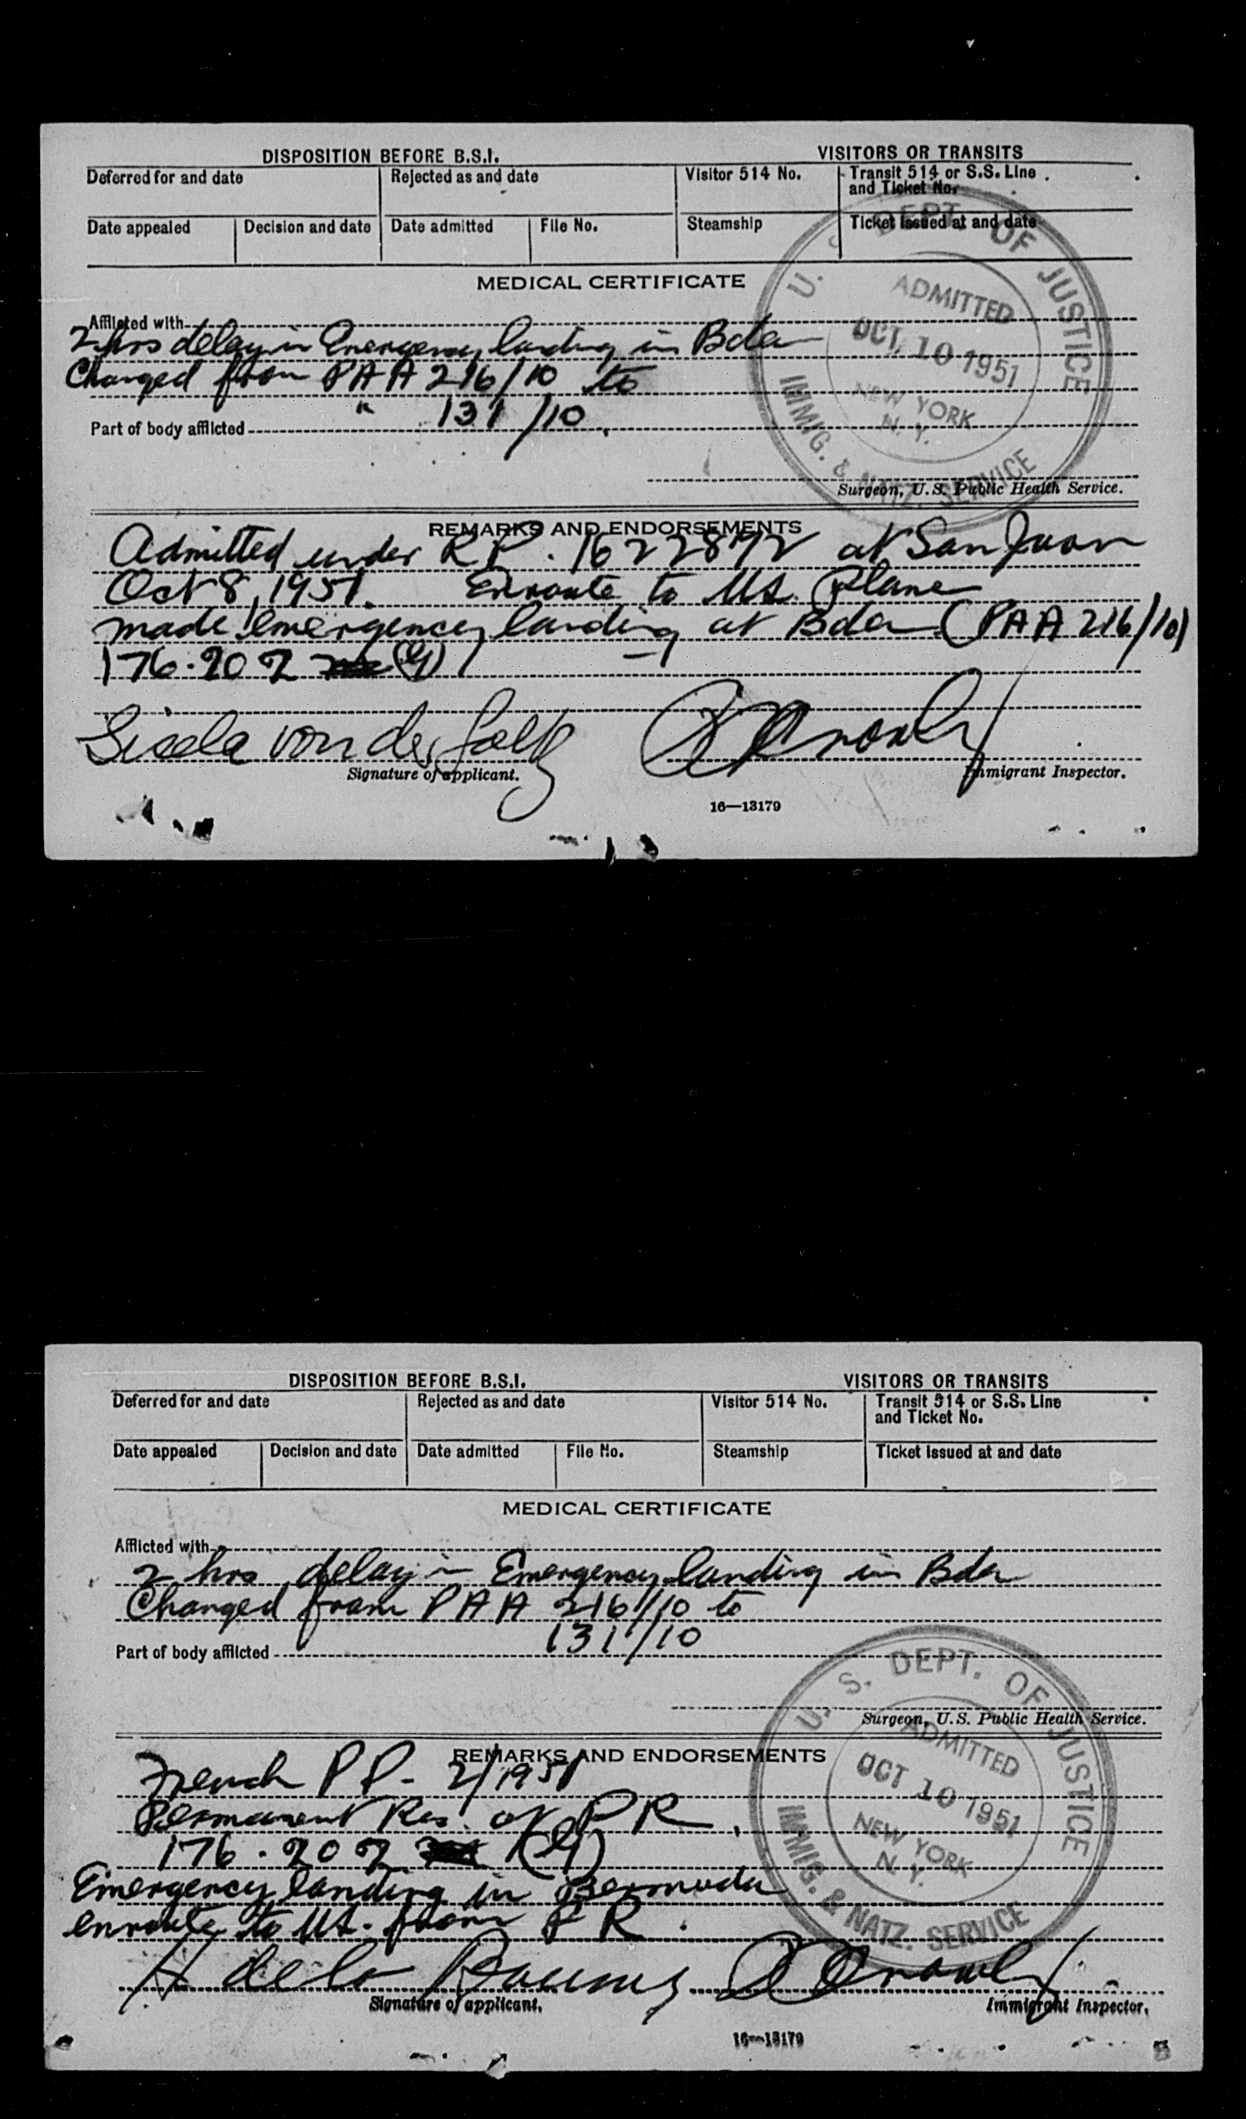 DISPOSITION BEFORE B.S.I. VISITORS OR TRANSITS
Deferred for and date Rejected as and date Visitor 514 No. Transit 514 or S.S. Line and Ticket No.
Date appealed Decision and date Date admitted File No. Steamship Ticket issued at and date
MEDICAL CERTIFICATE
Afflicted with
2 hrs delay in Emergency landing in Bda
Changed from PAA 216/10 to
Part of body afflicted " 131/10
Surgeon, U.S. Public Health Service.
U. S. DEPT. OF JUSTICE
ADMITTED
OCT 10 1951
NEW YORK
N. Y.
IMMIG. & NATZ. SERVICE
REMARKS AND ENDORSEMENTS
Admitted under R.P. at San Juan
Oct 8, 1951. Enroute to US. Plane
made emergency landing at Bda (PAA 216/10)
176.202
Gisela von der
Signature of applicant. Immigrant Inspector.
16—13179
DISPOSITION BEFORE B.S.I. VISITORS OR TRANSITS
Deferred for and date Rejected as and date Visitor 514 No. Transit 514 or S.S. Line and Ticket No.
Date appealed Decision and date Date admitted File No. Steamship Ticket issued at and date
MEDICAL CERTIFICATE
Afflicted with
2 hrs delay in Emergency landing in Bda
Changed from PAA 216/10 to
Part of body afflicted 131/10
Surgeon, U.S. Public Health Service.
U. S. DEPT. OF JUSTICE
ADMITTED
OCT 10 1951
NEW YORK
N. Y.
IMMIG. & NATZ. SERVICE
REMARKS AND ENDORSEMENTS
French PP - 2/1951
Permanent Res. of PR.
176.202
Emergency landing in Bermuda
enroute to US. from PR.
H de la
Signature of applicant. Immigrant Inspector.
16—13179